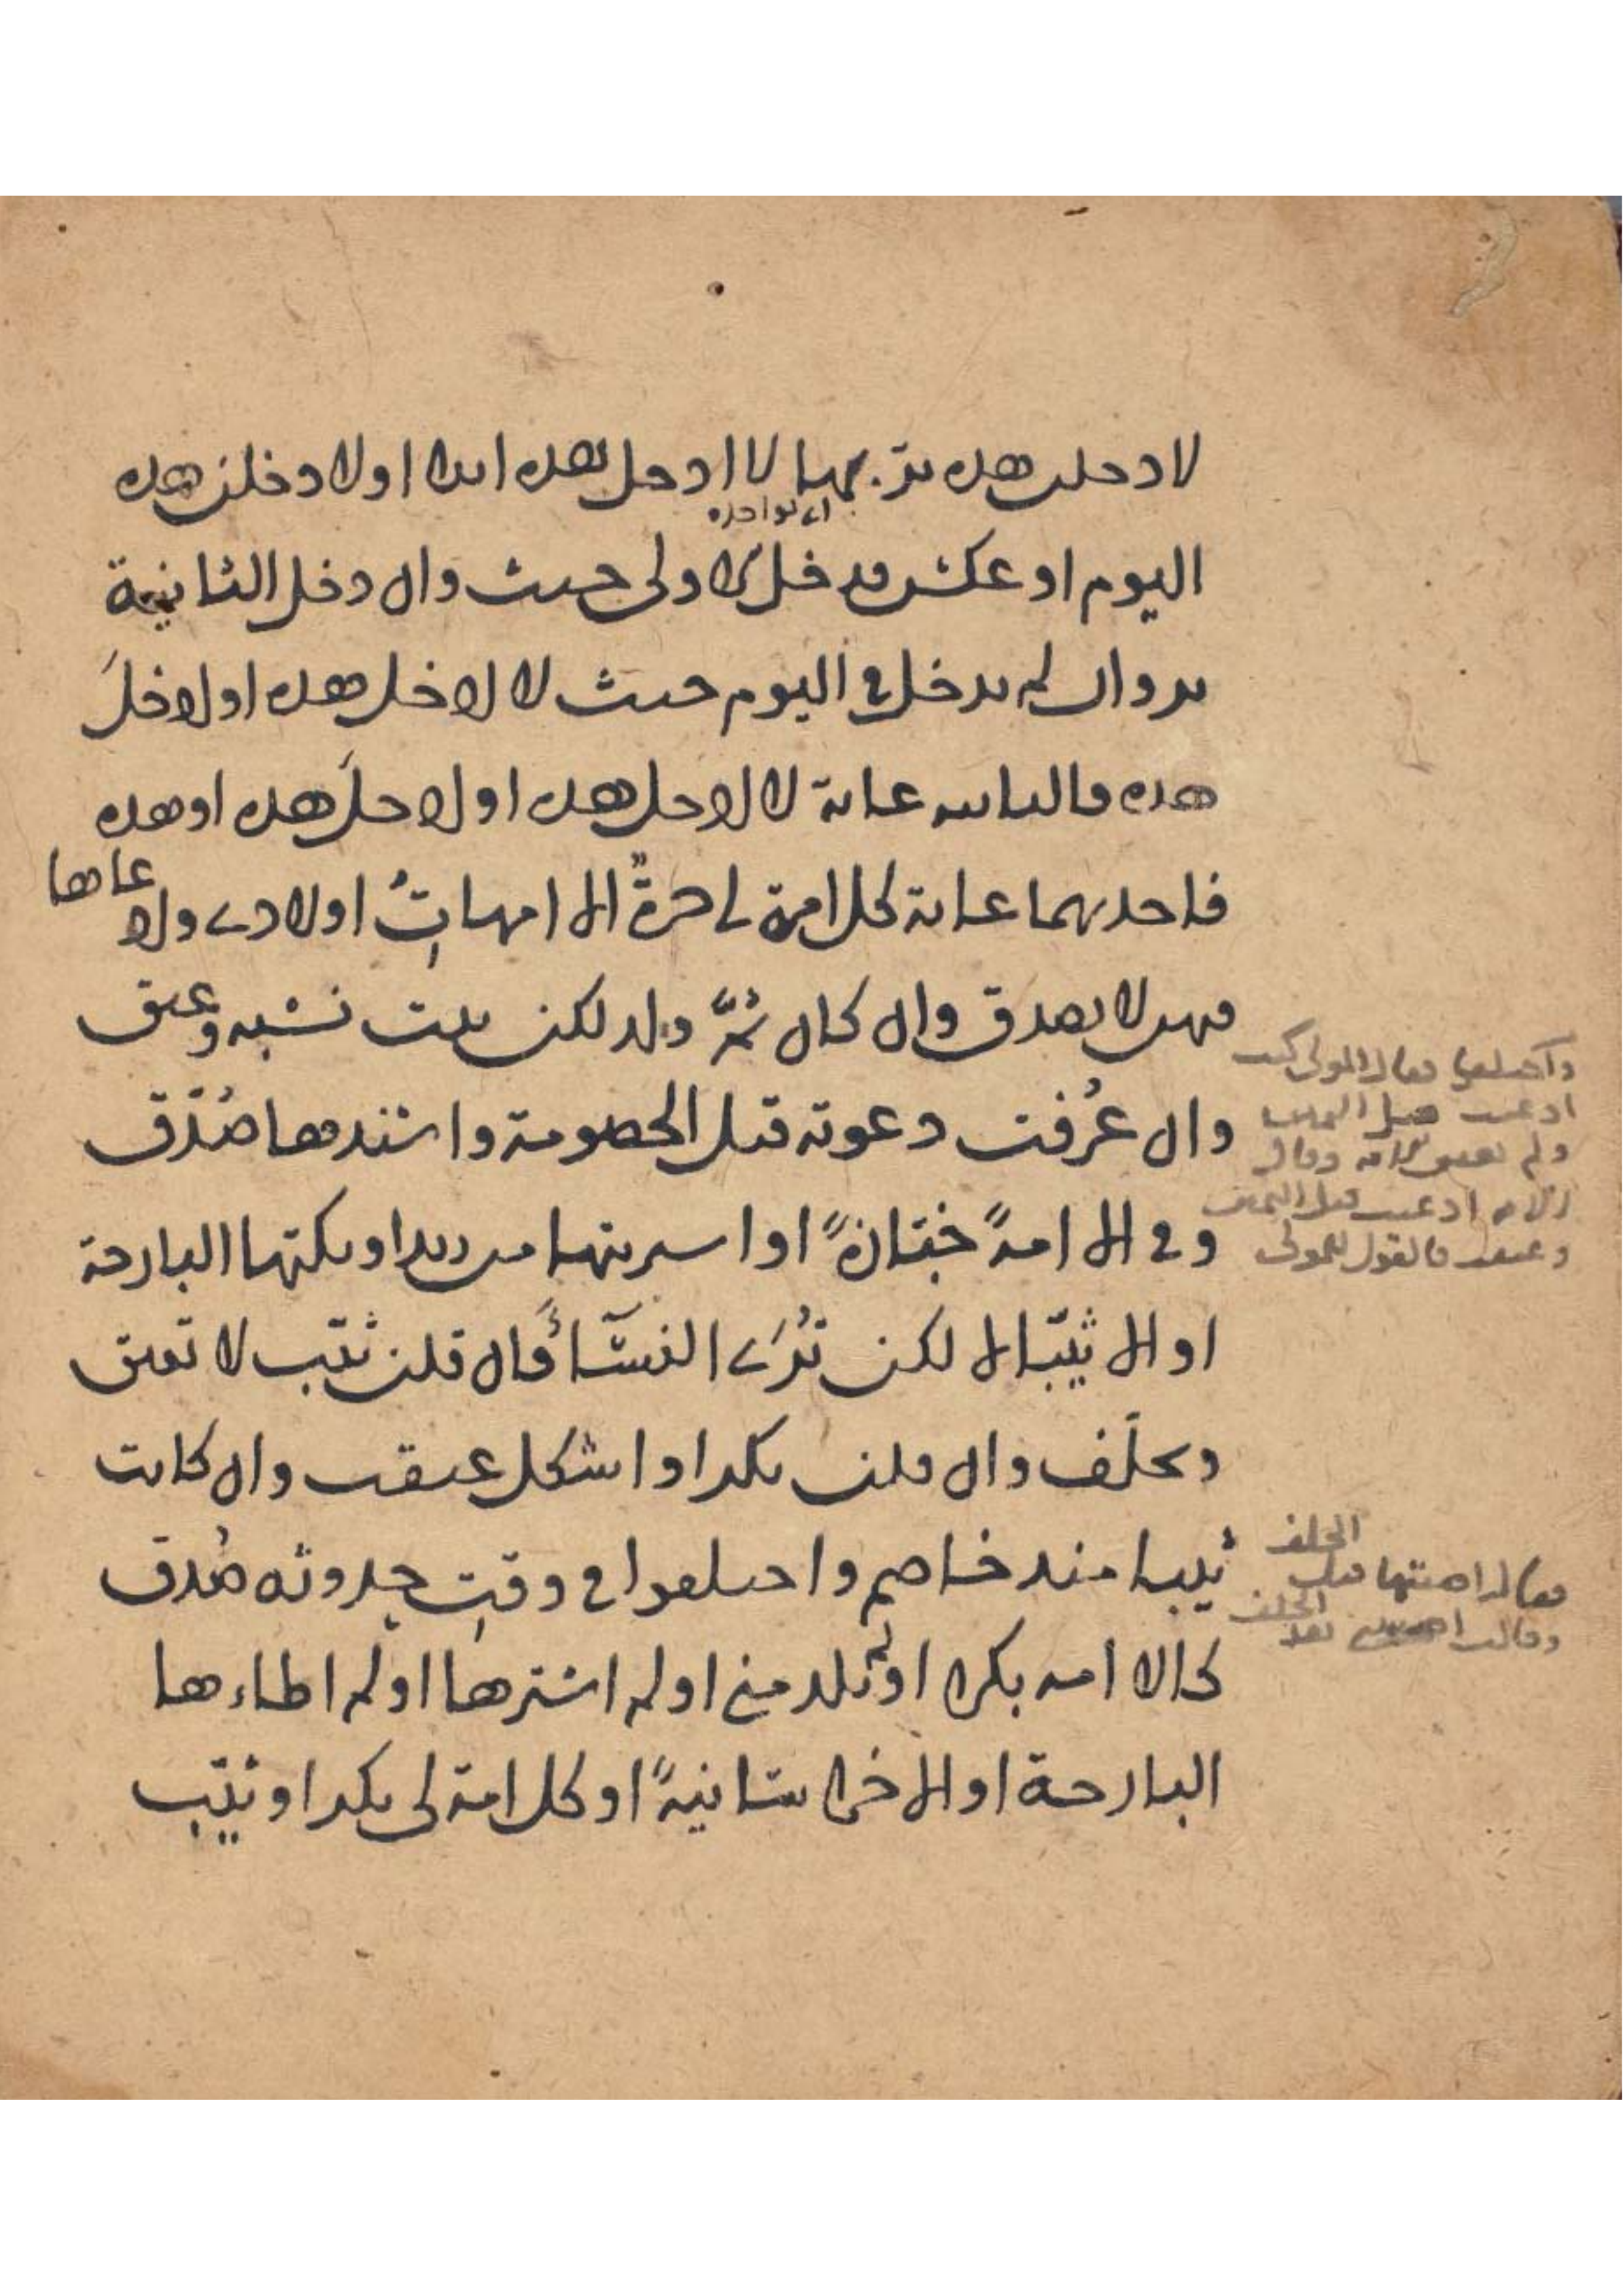 لادخلن هذه بر بهما لا ادخل هذه ابدا اولادخلن هذه
اي لواحده
اليوم او عكس فدخل الاولى حنث وان دخل الثانية
بر وان لم يدخل في اليوم حنث لا لادخل هذه او لادخل
هذه فالثانيه غاية لا لادخل هذه او لادخل هذه او هذه
فاحديهما غاية كل امة لي حرة الا امهات اولادي ولا
فهن لا يصدق وان كان ثَمَّ ولد لكن يثبت نسبه وعتق
وان عُرفت دعوته قبل الخصومة واشتدمها صُدّق
وفي الا امةً خبّازةً او اشتريتها من زيد او نكتها البارحة
او الا ثيّبا لا لكن تُرَى النسَّاءَ فان قلن ثيّب لا تعتق
ويحلَّف وان قلن بكر او اشكل عتقت وان كانت
ثيبا منذ خاصم واختلفوا في وقت حدوثه صُدق
كالا امه بكرا او لم تلد مني او لم اشترها او لم اطاءها
البارحة او الا خراسانيةً او كل امة لي بكر او ثيّب
واختلفا فقال المولى كنت
ادعيت قبل اليمين
ولم تعتق الامة وقالت
الامه ادعيت قبل اليمين
وعتقت فالقول للمولى
الحلف
فقال اصبتها قبل
الحلف
وقالت بعد